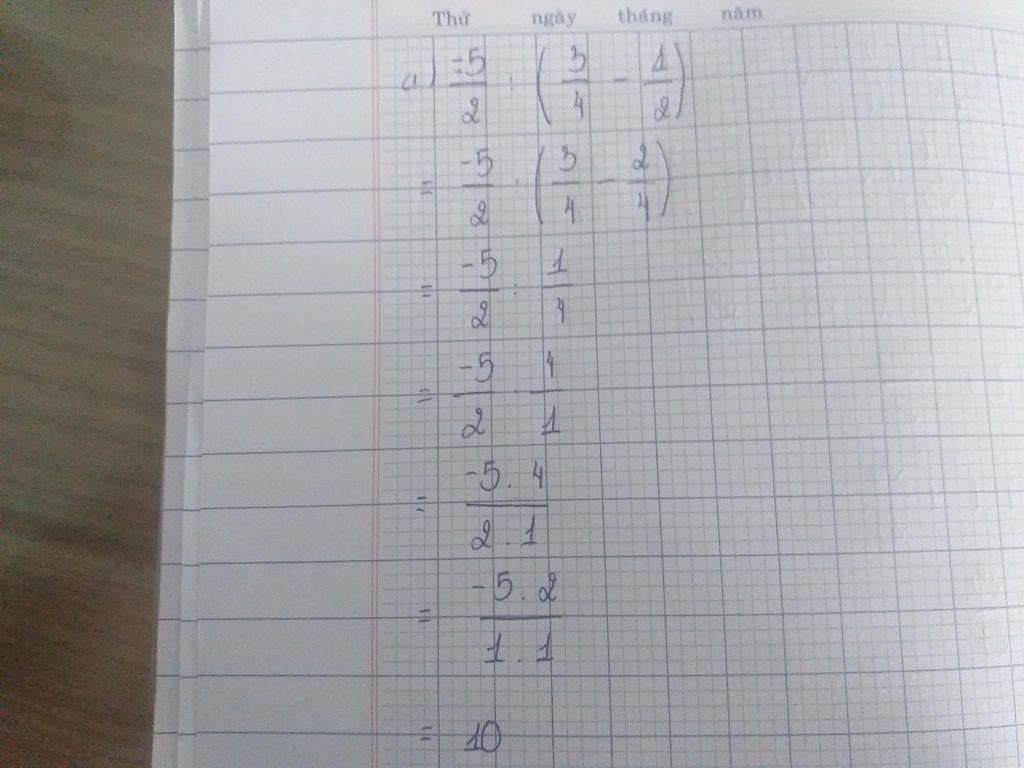 Thứ ngày tháng năm
a) -5/2 : (3/4 - 1/2)
= -5/2 : (3/4 - 2/4)
= -5/2 : 1/4
= -5/2 . 4/1
= -5 . 4 / 2 . 1
= -5 . 2 / 1 . 1
= 10